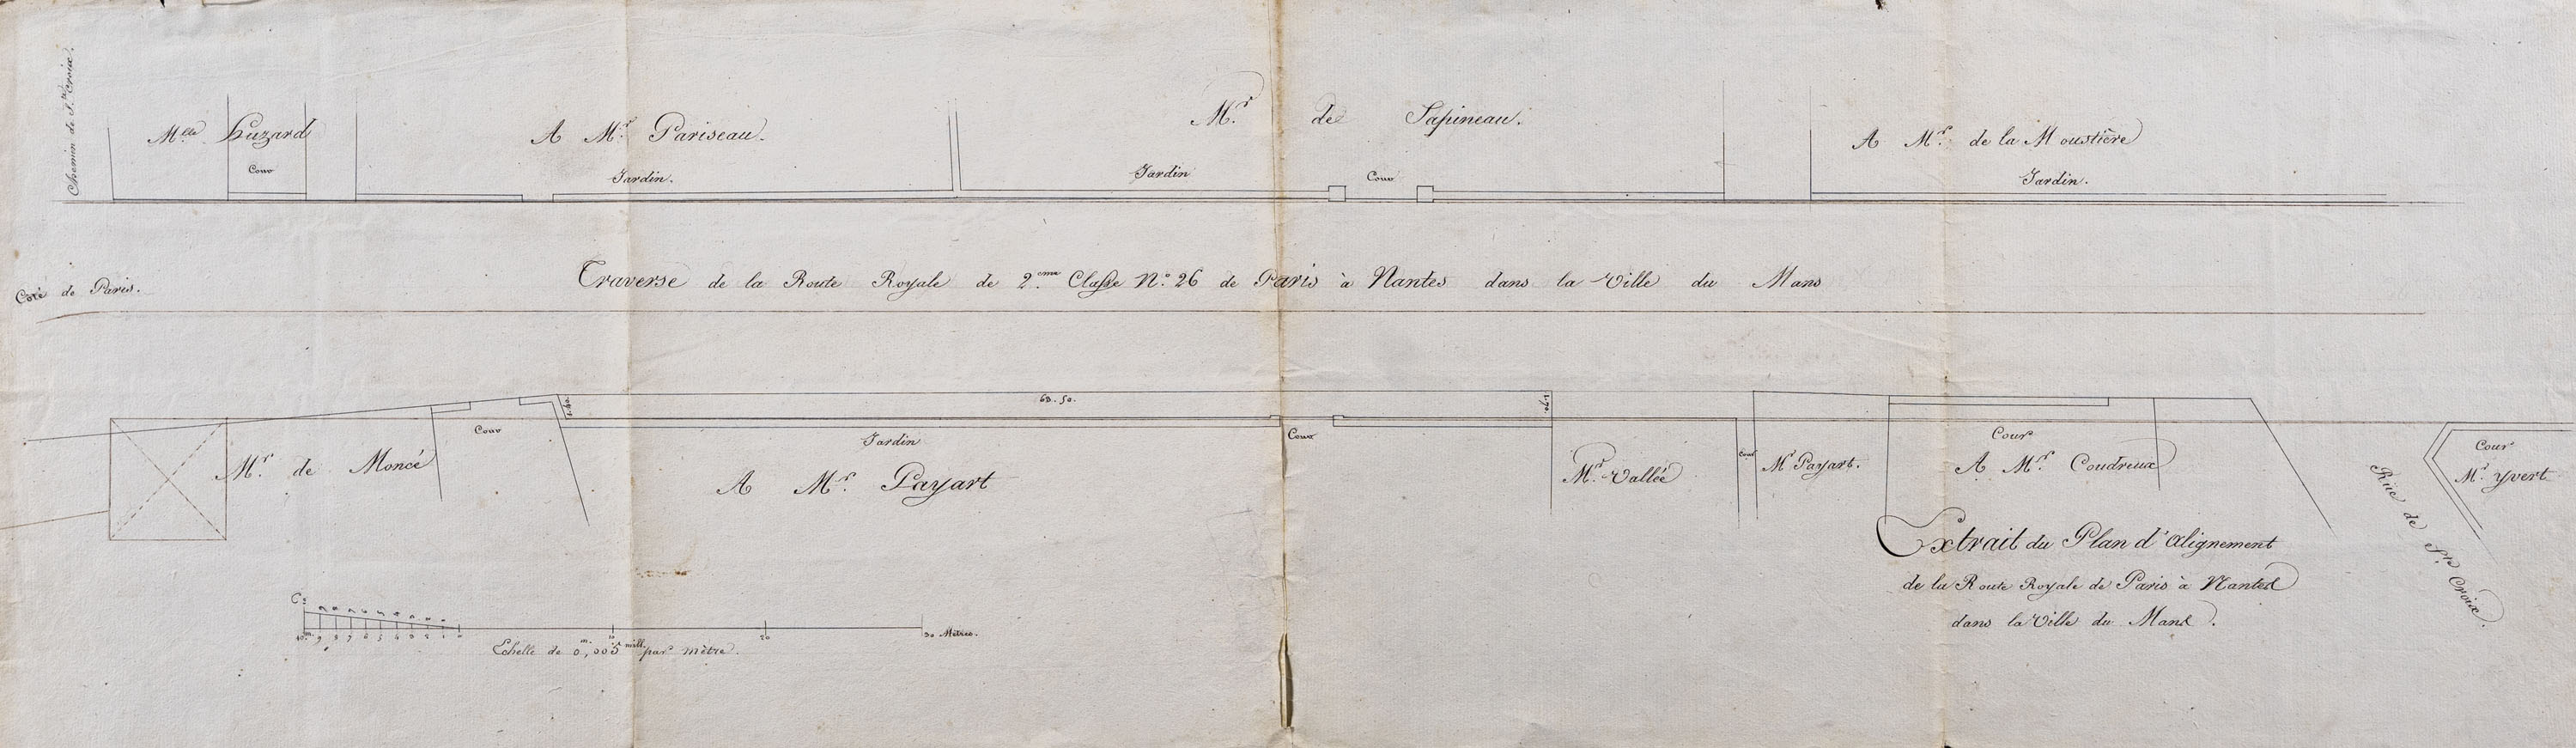 Chemin de Ste Croix.
Melle Huzard
Cour
A Mr. Pariseau.
Jardin.
Mr. de Sapineau.
Jardin
Cour
A Mr. de la Moustière
Jardin.
Coté de Paris.
Traverse de la Route Royale de 2.eme Classe N.o 26 de Paris à Nantes dans la Ville du Mans
Mr. de Moncé
Cour
1.40.
63.50.
1.70
Jardin
Cour
A Mr. Payart
Mr. Vallée
Cour
Mr Payart.
Cour
A Mr. Coudreux
Cour
Mr. Yvert
Rue de Ste Croix.
Extrait du Plan d'alignement
de la Route Royale de Paris à Nantes
dans la Ville du Mans.
10 m. 9 8 7 6 5 4 3 2 1 0 10 20 30 Mètres.
Echelle de 0,m005 mill. par mètre.